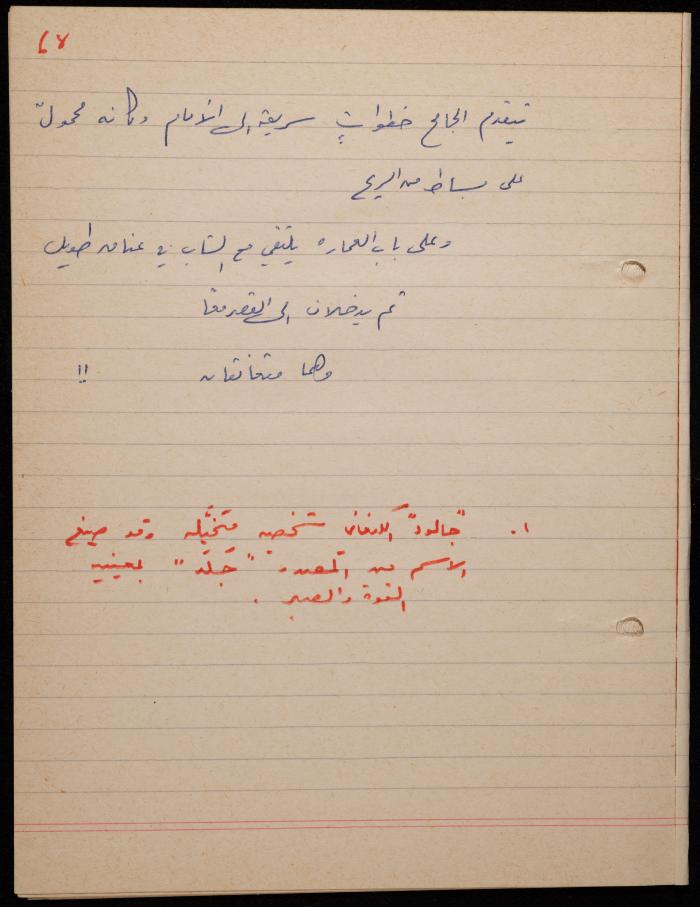 ٦٧
يتقدم الجامح خطواتٍ سريعة الى الأمام وكأنه محمولٌ
على بساط من الريح
وعلى باب العماره يلتقي مع الشاب في عناق طويل
ثم يدخلان الى القصر معًا
وهما متعانقان !!
١. "جالود" الكنعاني شخصيه متخيَّله وقد صيغ
الاسم من المصدر "جَلَد" بمعنييه
القوة والصبر .